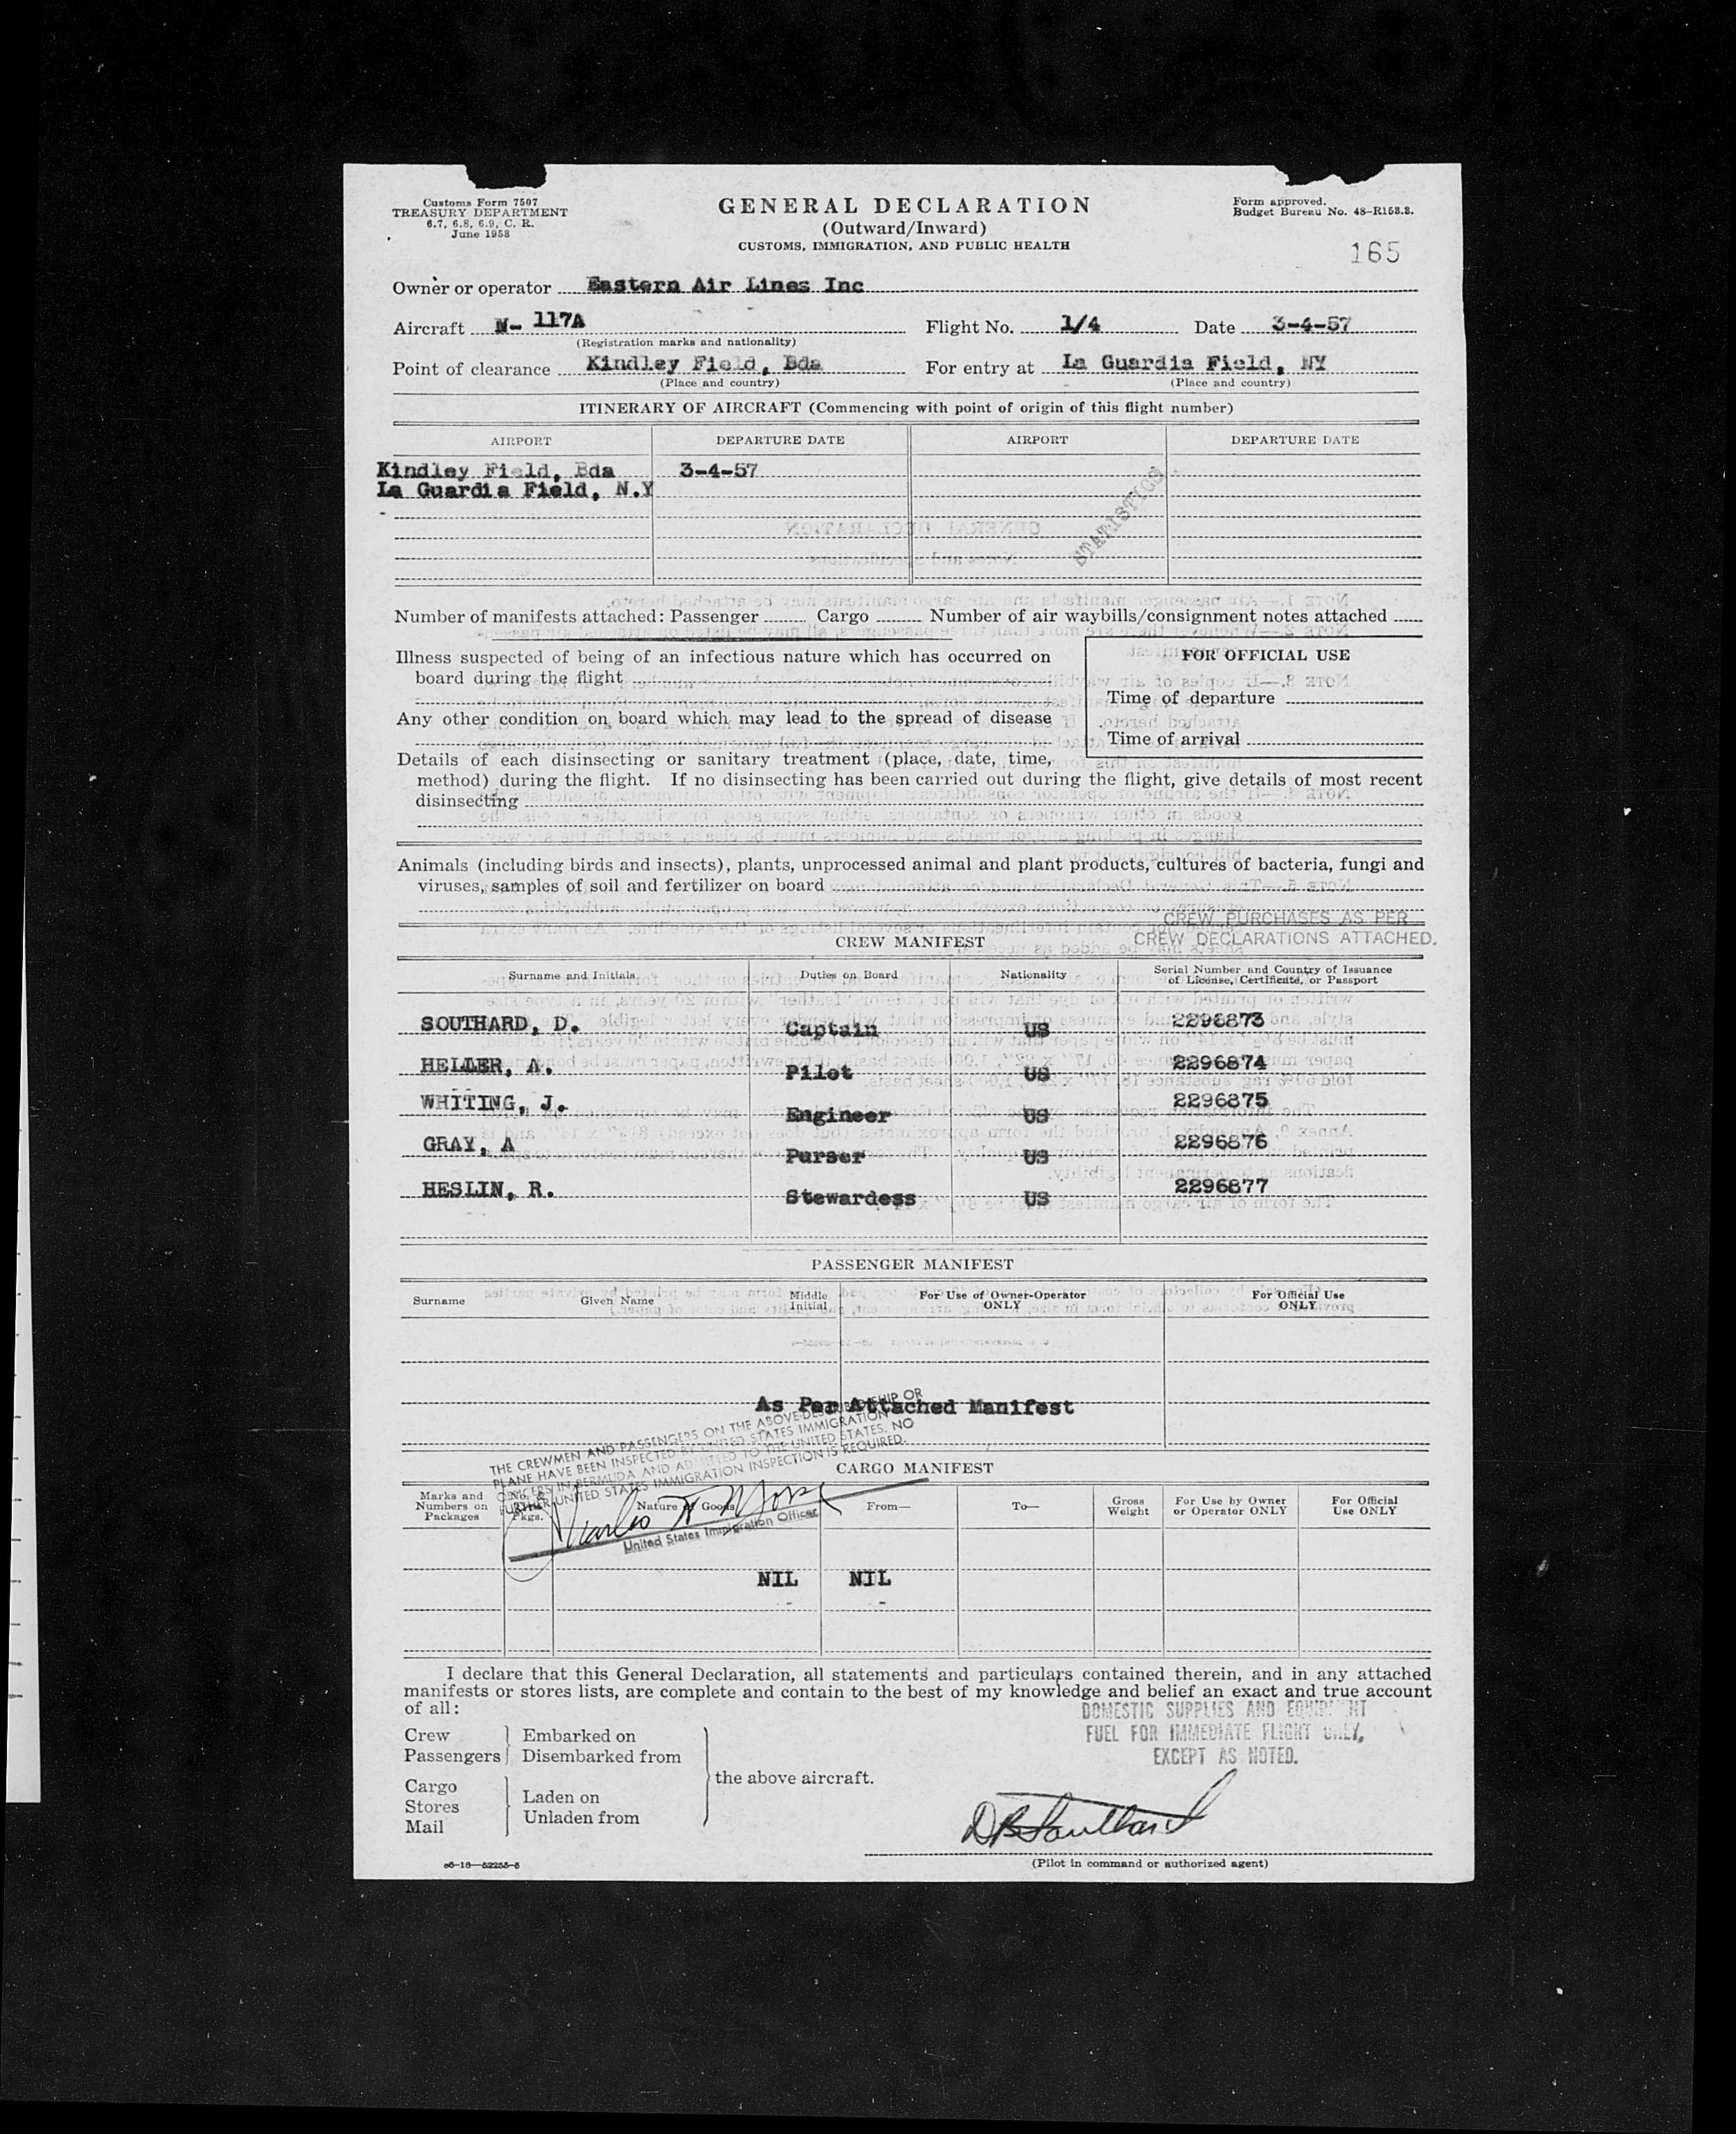 Customs Form 7507
TREASURY DEPARTMENT
6.7, 6.8, 6.9, C. R.
June 1953
GENERAL DECLARATION
(Outward/Inward)
CUSTOMS, IMMIGRATION, AND PUBLIC HEALTH
Form approved.
Budget Bureau No. 48-R158.3.
165
Owner or operator Eastern Air Lines Inc
Aircraft N- 117A Flight No. 1/4 Date 3-4-57
(Registration marks and nationality)
Point of clearance Kindley Field, Bda For entry at La Guardia Field, NY
(Place and country) (Place and country)
ITINERARY OF AIRCRAFT (Commencing with point of origin of this flight number)
AIRPORT DEPARTURE DATE AIRPORT DEPARTURE DATE
Kindley Field, Bda 3-4-57
La Guardia Field, N.Y
STATISTICS
Number of manifests attached: Passenger Cargo Number of air waybills/consignment notes attached
Illness suspected of being of an infectious nature which has occurred on
board during the flight
FOR OFFICIAL USE
Time of departure
Any other condition on board which may lead to the spread of disease
Time of arrival
Details of each disinsecting or sanitary treatment (place, date, time,
method) during the flight. If no disinsecting has been carried out during the flight, give details of most recent
disinsecting
Animals (including birds and insects), plants, unprocessed animal and plant products, cultures of bacteria, fungi and
viruses, samples of soil and fertilizer on board
CREW PURCHASES AS PER
CREW DECLARATIONS ATTACHED.
CREW MANIFEST
Surname and Initials Duties on Board Nationality Serial Number and Country of Issuance
of License, Certificate, or Passport
SOUTHARD, D. Captain US 2296873
HELLER, A. Pilot US 2296874
WHITING, J. Engineer US 2296875
GRAY, A Purser US 2296876
HESLIN, R. Stewardess US 2296877
PASSENGER MANIFEST
Surname Given Name Middle Initial For Use of Owner-Operator ONLY For Official Use ONLY
As Per Attached Manifest
THE CREWMEN AND PASSENGERS ON THE ABOVE-DESCRIBED SHIP OR
PLANE HAVE BEEN INSPECTED BY UNITED STATES IMMIGRATION
OFFICERS IN BERMUDA AND ADMITTED TO THE UNITED STATES. NO
FURTHER UNITED STATES IMMIGRATION INSPECTION IS REQUIRED.
United States Immigration Officer
CARGO MANIFEST
Marks and Numbers on Packages No. & Pkgs. Nature of Goods From— To— Gross Weight For Use by Owner or Operator ONLY For Official Use ONLY
NIL NIL
I declare that this General Declaration, all statements and particulars contained therein, and in any attached
manifests or stores lists, are complete and contain to the best of my knowledge and belief an exact and true account
of all:
DOMESTIC SUPPLIES AND EQUIPMENT
FUEL FOR IMMEDIATE FLIGHT ONLY,
EXCEPT AS NOTED.
Crew Embarked on
Passengers Disembarked from
the above aircraft.
Cargo
Stores Laden on
Mail Unladen from
D B Southard
(Pilot in command or authorized agent)
c6-16—52255-5